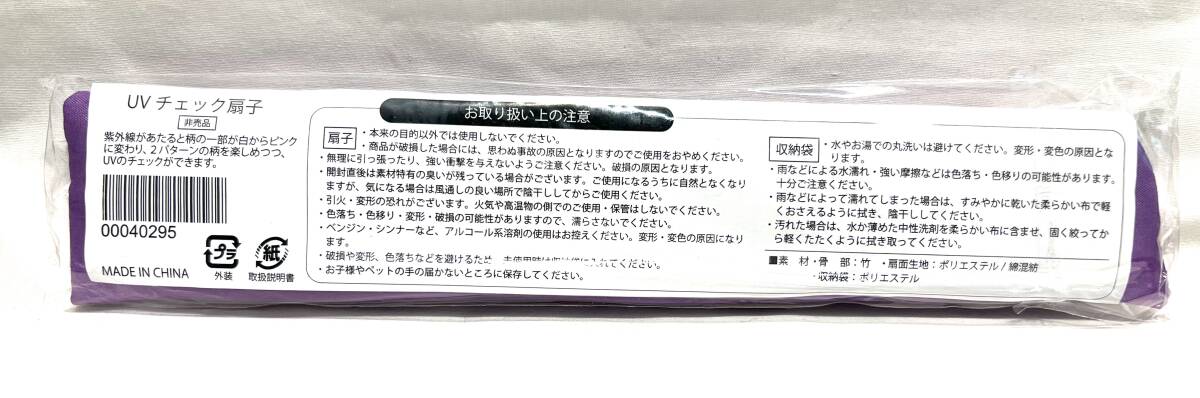 UV チェック扇子
非売品
紫外線があたると柄の一部が白からピンク
に変わり、2パターンの柄を楽しめつつ、
UVのチェックができます。
00040295
MADE IN CHINA
プラ
外装
紙
取扱説明書
お取り扱い上の注意
扇子
・本来の目的以外では使用しないでください。
・商品が破損した場合には、思わぬ事故の原因となりますのでご使用をおやめください。
・無理に引っ張ったり、強い衝撃を与えないようご注意ください。破損の原因となります。
・開封直後は素材特有の臭いが残っている場合がございます。ご使用になるうちに自然となくなり
ますが、気になる場合は風通しの良い場所で陰干ししてからご使用ください。
・引火・変形の恐れがございます。火気や高温物の側でのご使用・保管はしないでください。
・色落ち・色移り・変形・破損の可能性がありますので、濡らさないでください。
・ベンジン・シンナーなど、アルコール系溶剤の使用はお控えください。変形・変色の原因になり
ます。
・破損や変形、色落ちなどを避けるため、未使用時は収納袋に入れてください。
・お子様やペットの手の届かないところに保存してください。
収納袋
・水やお湯での丸洗いは避けてください。変形・変色の原因とな
ります。
・雨などによる水濡れ・強い摩擦などは色落ち・色移りの可能性があります。
十分ご注意ください。
・雨などによって濡れてしまった場合は、すみやかに乾いた柔らかい布で軽
くおさえるように拭き、陰干ししてください。
・汚れた場合は、水か薄めた中性洗剤を柔らかい布に含ませ、固く絞ってか
ら軽くたたくように拭き取ってください。
■素 材・骨 部：竹 ・扇面生地：ポリエステル / 綿混紡
・収納袋：ポリエステル